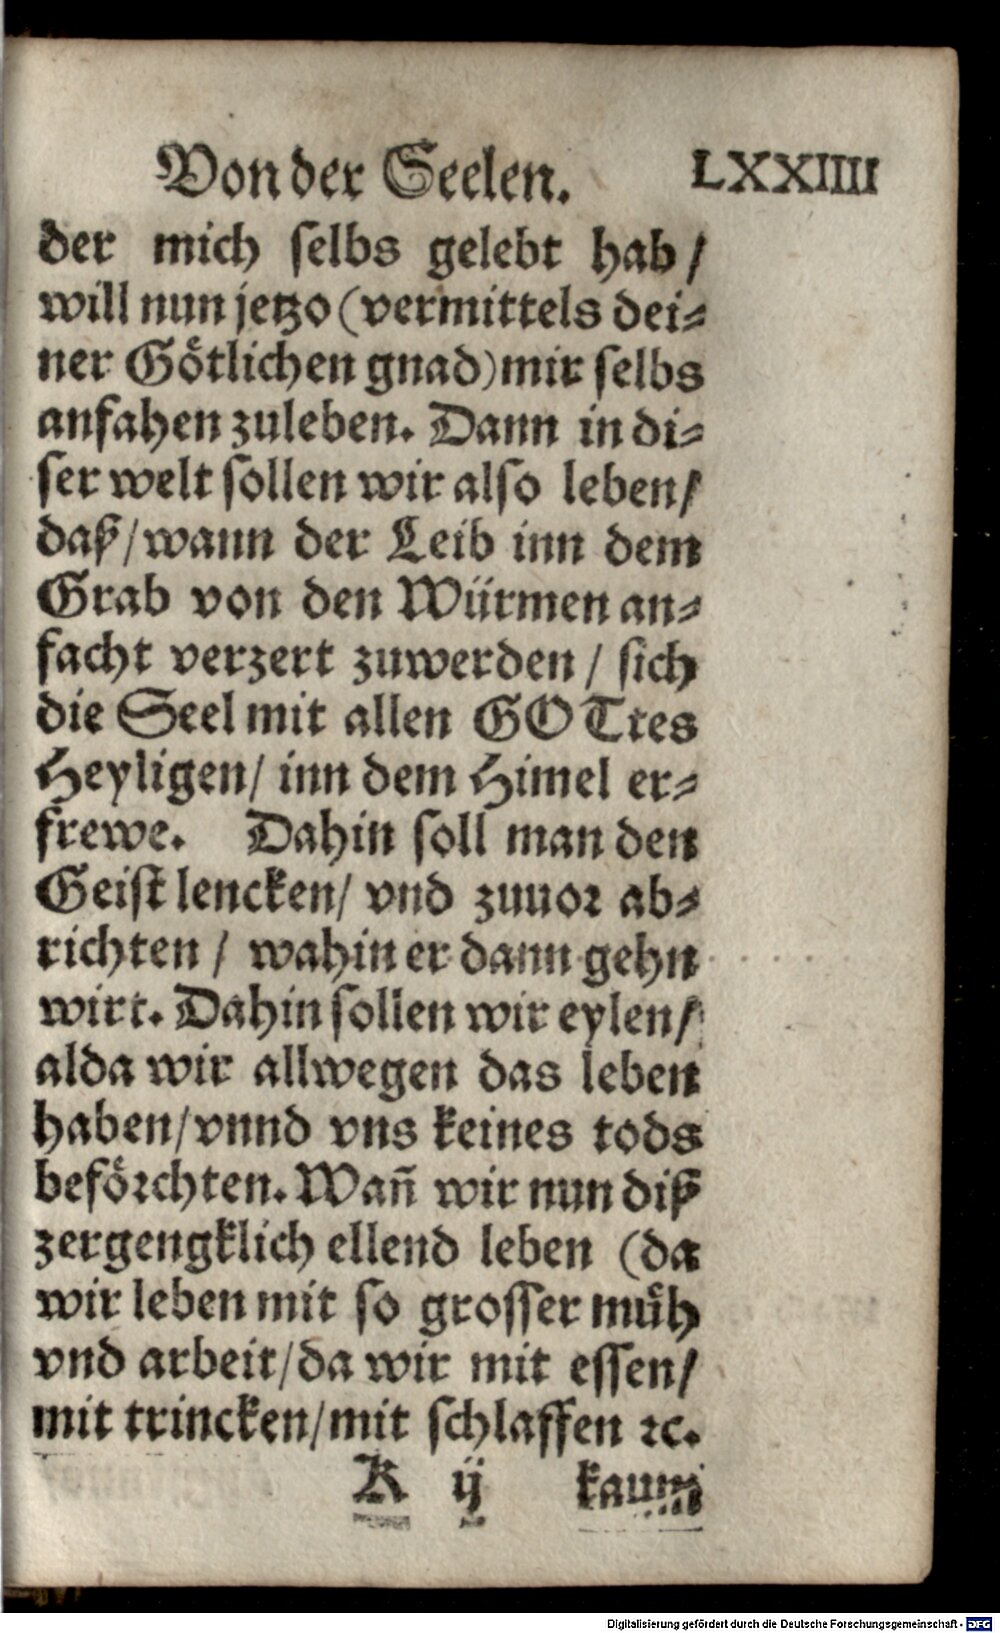 Von der Seelen. LXXIIII
der mich selbs gelebt hab/
will nun jetzo (vermittels dei⸗
ner Go&#x364;tlichen gnad) mir selbs
anfahen zuleben. Dann in di⸗
ser welt sollen wir also leben/
daß/ wann der Leib inn dem
Grab von den Würmen an⸗
facht verzert zuwerden/ sich
die Seel mit allen GOTtes
Heyligen/ inn dem Himel er⸗
frewe. Dahin soll man den
Geist lencken/ vnd zuuor ab⸗
richten/ wahin er dann gehn
wirt. Dahin sollen wir eylen/
alda wir allwegen das leben
haben/ vnnd vns keines tods
befoͤrchten. Wan̄ wir nun diß
zergengklich ellend leben (da
wir leben mit so grosser muͤh
vnd arbeit/ da wir mit essen/
mit trincken/ mit schlaffen ꝛc.
K ij kaum
Digitalisierung gefördert durch die Deutsche Forschungsgemeinschaft - DFG